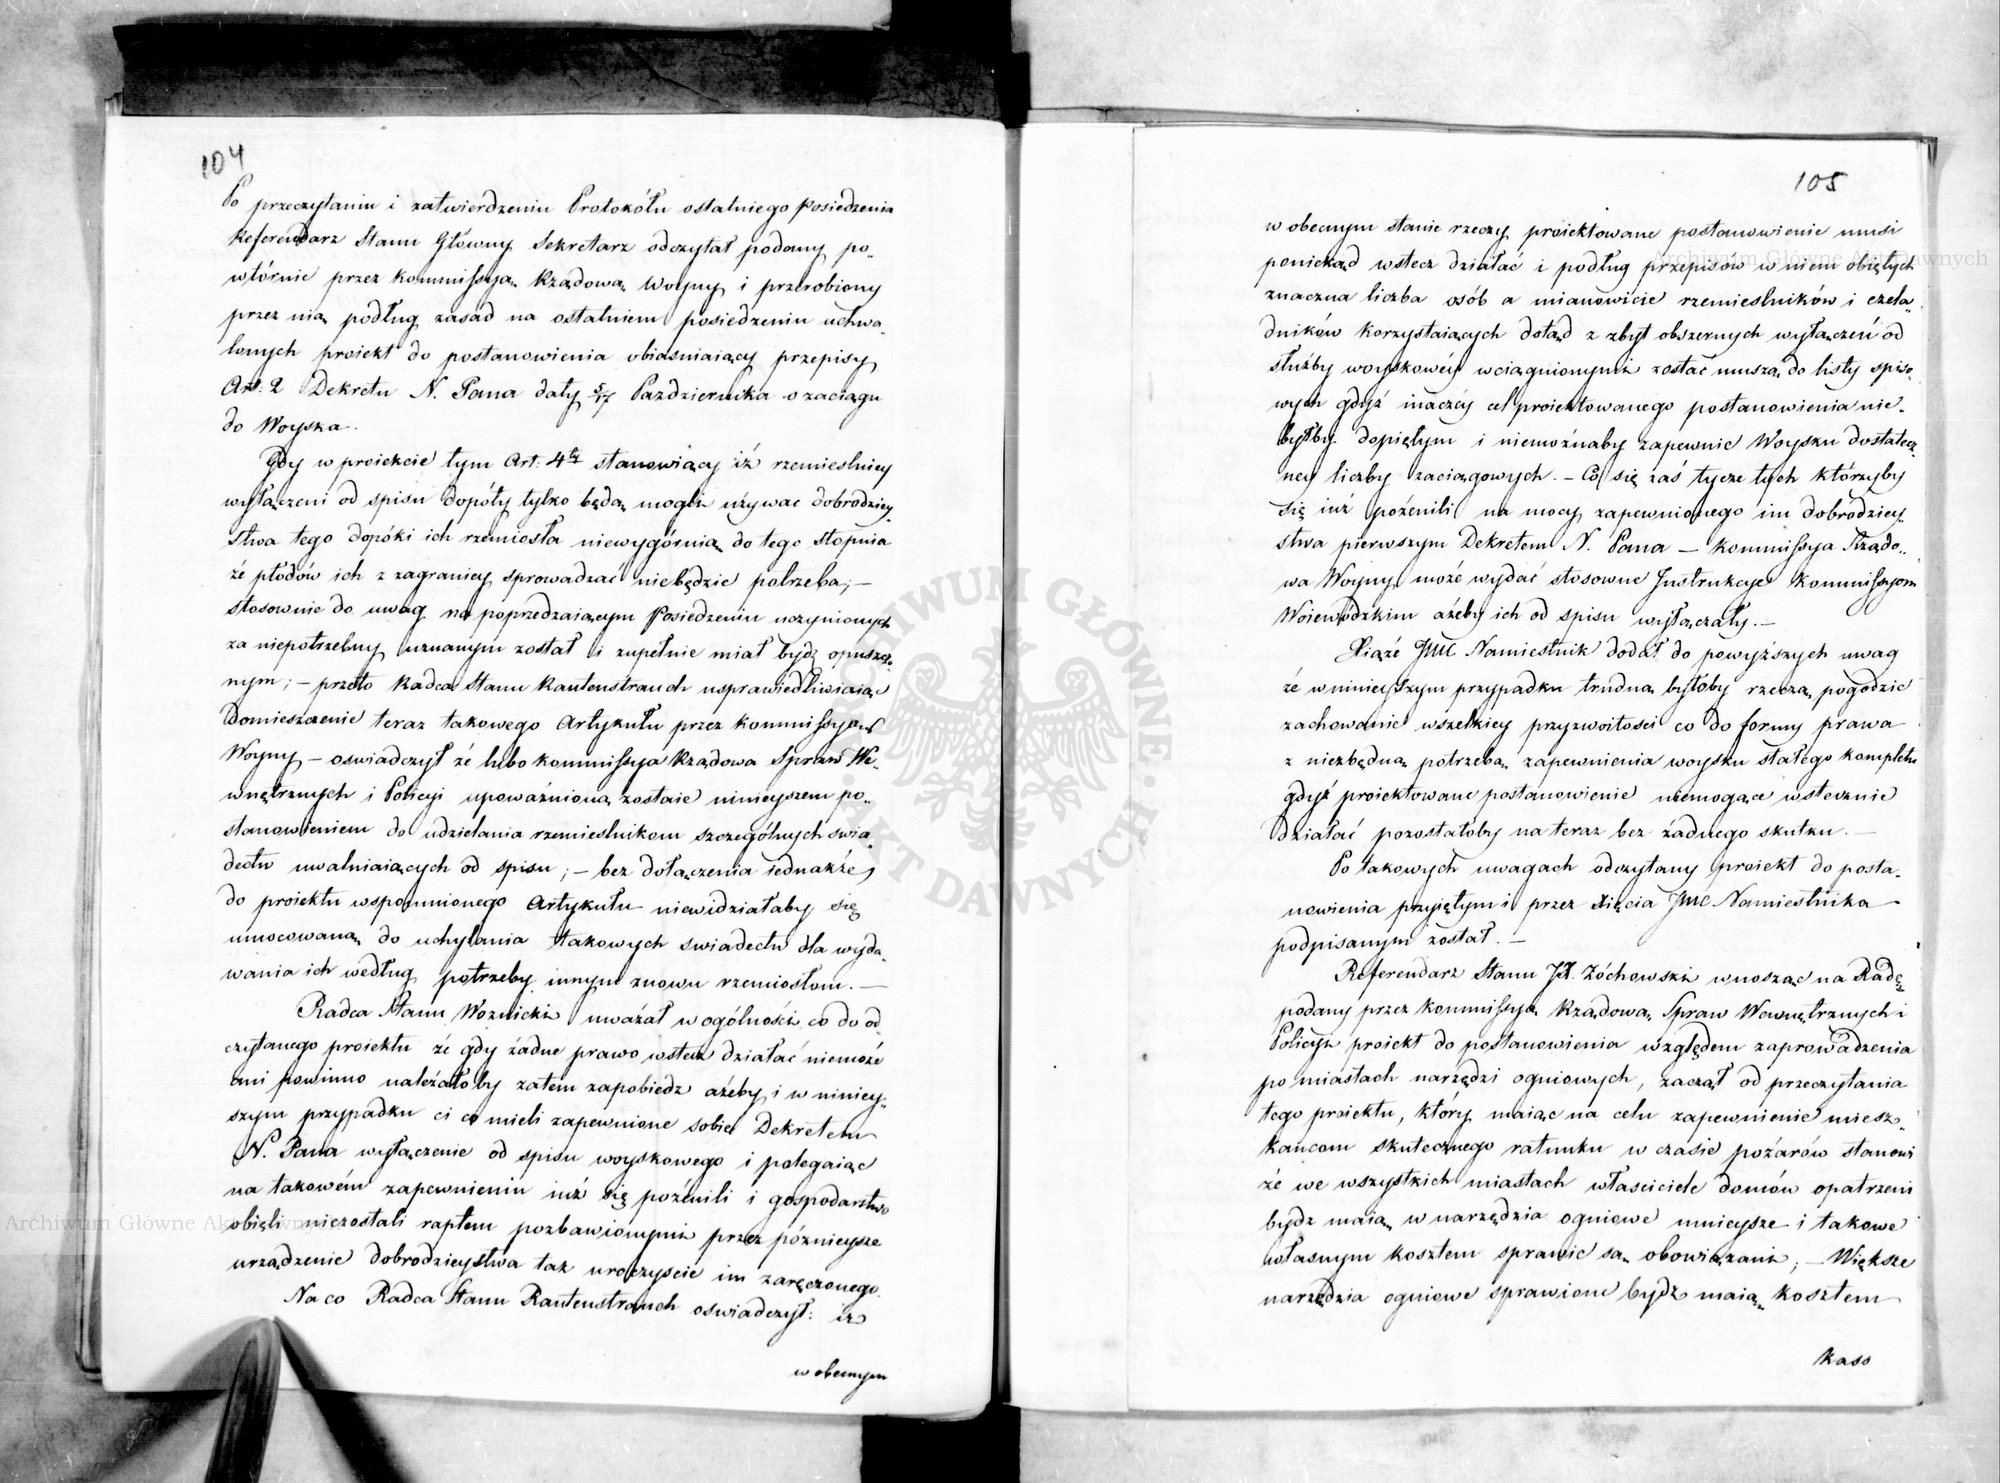 104
Po przeczytaniu i zatwierdzeniu Protokółu ostatniego Posiedzenia
Referendarz Stanu Główny Sekretarz odczytał podany po„
wtórnie przez Kommissyą Rządową Woyny i przerobiony
przez nią podług zasad na ostatniem posiedzeniu uchwa„
lonych proiekt do postanowienia obiaśniaiący przepisy
Art: 2 Dekretu N. Pana daty 5/17 Października o zaciągu
do Woyska.
Gdy w proiekcie tym Art: 4ty stanowiący iż rzemieślnicy
wyłączeni od spisu dopóty tylko będą mogli używać dobrodziey„
stwa tego dopóki ich rzemiosła niewygórnią do tego stopnia
że płodów ich z zagranicy sprowadzać niebędzie potrzeba; —
stosownie do uwag na poprzedzaiącym Posiedzeniu uczynionych
za niepotrzebny uznanym został i zupełnie miał bydź opuszczo„
nym; — przeto Radca Stanu Rautenstrauch usprawiedliwiaiąc
domieszczenie teraz takowego Artykułu przez Kommissyą
Woyny — oświadczył że lubo Kommissya Rządowa Spraw We„
wnętrznych i Policyi upoważnioną zostaie ninieyszem po„
stanowieniem do udzielania rzemieślnikom szczególnych świa„
dectw uwalniaiących od spisu; — bez dołączenia iednakże
do proiektu wspomnionego Artykułu niewidziałaby się
umocowaną do uchylania takowych świadectw dla wyda„
wania ich według potrzeby innym znowu rzemiosłom. —
Radca Stanu Woźnicki uważał w ogólności co do od„
czytanego proiektu że gdy żadne prawo wstecz działać niemoże
ani powinno należałoby zatem zapobiedz ażeby i w niniey„
szym przypadku ci co mieli zapewnione sobie Dekretem
N. Pana wyłączenie od spisu woyskowego i polegaiąc
na takowém zapewnieniu iuż się pożenili i gospodarstwo
obięli niezostali raptem pozbawionymi przez późnieysze
urządzenie dobrodzieystwa tak uroczyście im zaręczonego.
Na co Radca Stanu Rautenstrauch oświadczył: iż
w obecnym
105
w obecnym stanie rzeczy proiektowane postanowienie musi
poniekąd wstecz działać i podług przepisów w niem obiętych
znaczna liczba osób a mianowicie rzemieślników i czela„
dników korzystaiących dotąd z zbyt obszernych wyłączeń od
służby woyskowéy wciągnionymi zostać muszą do listy spiso„
wych gdyż inaczéy cel proiektowanego postanowienia nie„
byłby dopiętym i niemożnaby zapewnić Woysku dostatecz„
ney liczby zaciągowych. — Co się zaś tycze tych którzyby
się iuż pożenili na mocy zapewnionego im dobrodziey„
stwa pierwszym Dekretem N. Pana — Kommissya Rządo„
wa Woyny może wydać stosowne Instrukcye Kommissyom
Woiewódzkim ażeby ich od spisu wyłączały. —
Xiąże JMC Namiestnik dodał do powyższych uwag
że w ninieyszym przypadku trudną byłoby rzeczą pogodzić
zachowanie wszelkiey przyzwoitości co do formy prawa
z niezbędną potrzebą zapewnienia woysku stałego kompletu
gdyż proiektowane postanowienie niemogące wstecznie
działać pozostałoby na teraz bez żadnego skutku. —
Po takowych uwagach odczytany proiekt do posta„
nowienia przyiętym i przez Xięcia JMC Namiestnika
podpisanym został. —
Referendarz Stanu JX. Zóchowski wnosząc na Radę
podany przez Kommissyą Rządową Spraw Wewnętrznych i
Policyi proiekt do postanowienia względem zaprowadzenia
po miastach narzędzi ogniowych, zaczął od przeczytania
tego proiektu, który maiąc na celu zapewnienie miesz„
kańcom skutecznego ratunku w czasie pożarów stanowi
że we wszystkich miastach właściciele domów opatrzeni
bydź maią w narzędzia ogniowe mnieysze i takowe
własnym kosztem sprawić są obowiązani; — Większe
narzędzia ogniowe sprawione bydź maią kosztem
kass
Archiwum Główne Akt Dawnych
Archiwum Główne Akt Dawnych
ARCHIWUM GŁÓWNE
AKT DAWNYCH